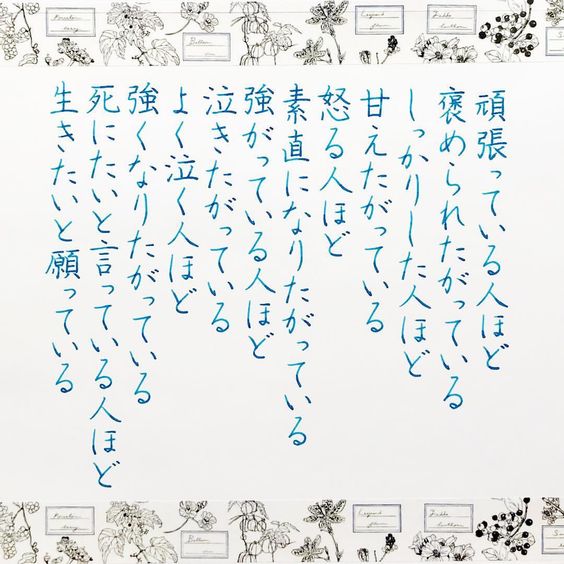 頑張っている人ほど
褒められたがっている
しっかりした人ほど
甘えたがっている
怒る人ほど
素直になりたがっている
強がっている人ほど
泣きたがっている
よく泣く人ほど
強くなりたがっている
死にたいと言っている人ほど
生きたいと願っている